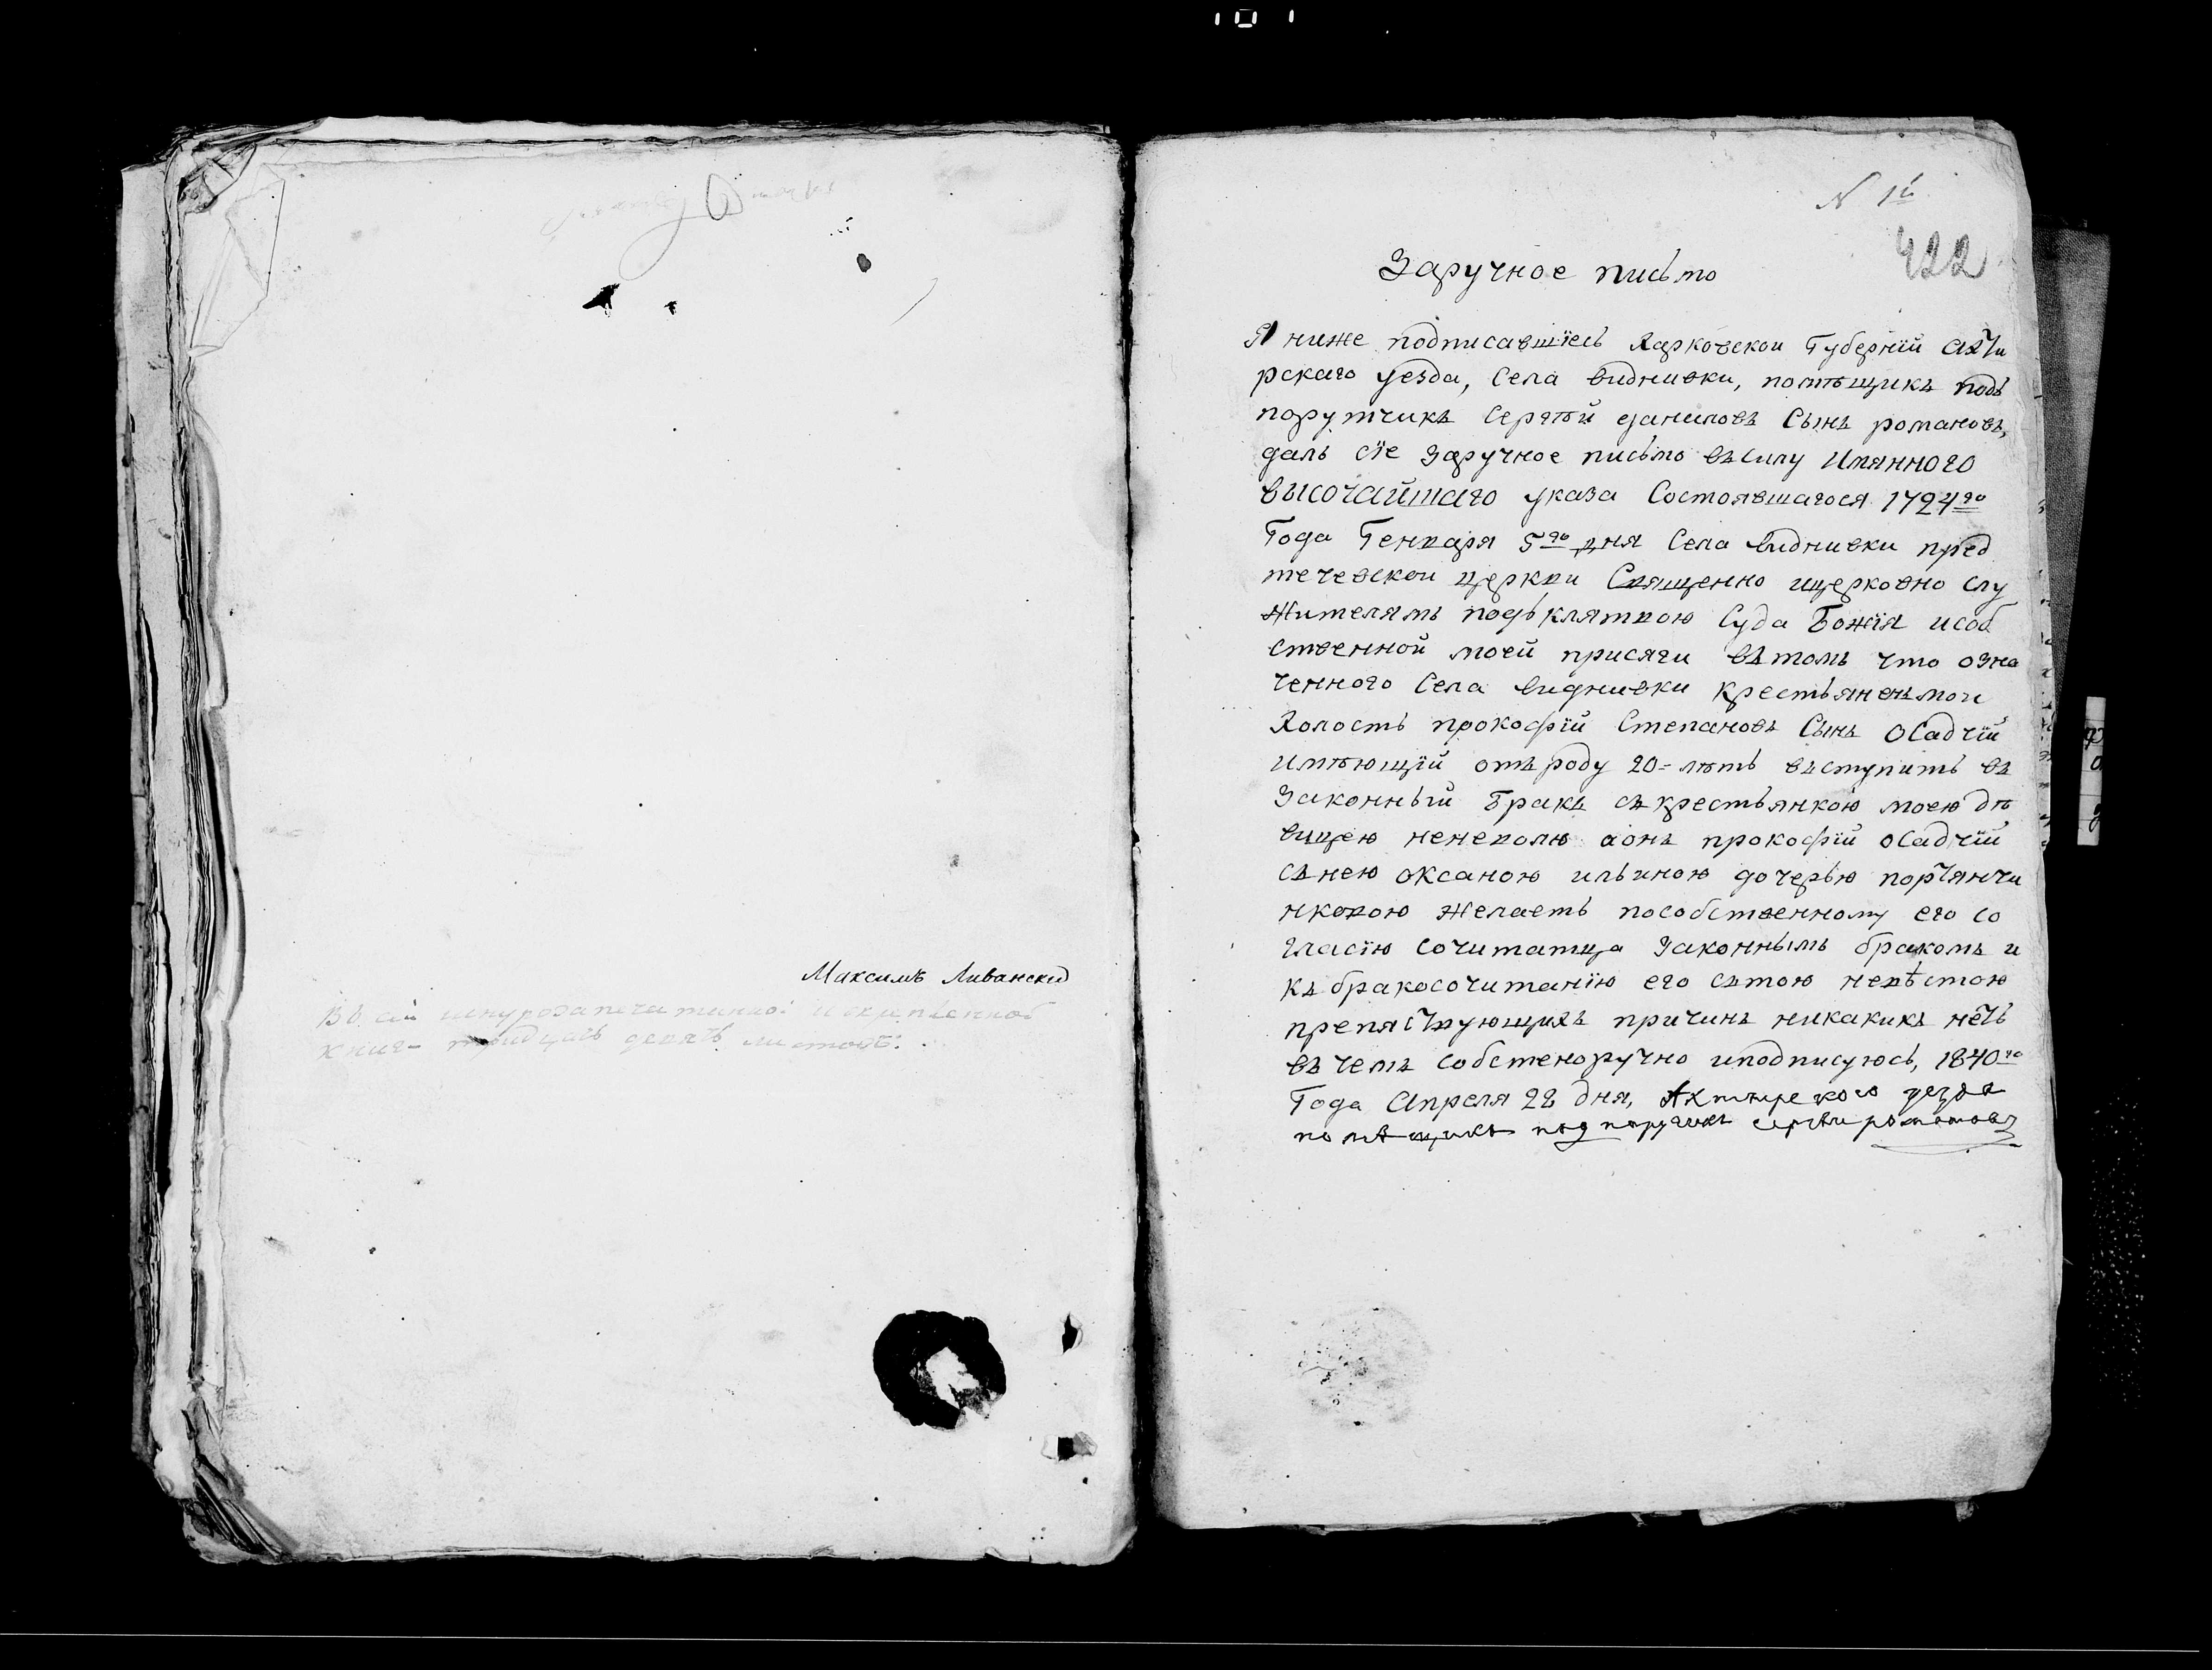 Максимъ Ливанскій
Въ сей шнурозапечатанной и скрепленной
книг- тридцать девять листовъ.
N 1й
422
Заручное письмо
Я ниже подписавшїесь Харковской Губернїй ахти
рскаго уезда, Села виднивки, помѣщикъ подъ
порутчикъ Сергѣй даниловъ Сынъ романовъ,
далъ сїе заручное письмо въсилу Имянного
высочайшаго указа Состоявшагося 1724го
Года Генваря 5го дня Села виднивки пред
течевской церкви Священно ицерковно слу
жителямъ подъ клятвою Суда Божїя исоб
ственной моей присяги въ томъ что озна
ченного Села видчивки крестьяненъ мои
Холостъ прокофїй Степановъ Сынъ Осадчїй
имѣющїй отъ роду 20=лѣтъ въступить въ
Законный Бракъ съ крестьянкою моею дѣ
вицею неневолю аонъ прокофїй Осадчїй
сънею оксаною ильиною дочерью портянчи
нковою желаетъ пособственному его со
гласїю сочитатца законнымъ бракомъ и
къ бракосочитанїю его сътою невѣстою
препятствующихъ причинъ никакихъ нетъ
въ чемъ собстеноручно иподписуюсь, 1840го
Года Апреля 28 дня, Ахтирского уезда
помѣщикъ под поручикъ сергѣи романовъ